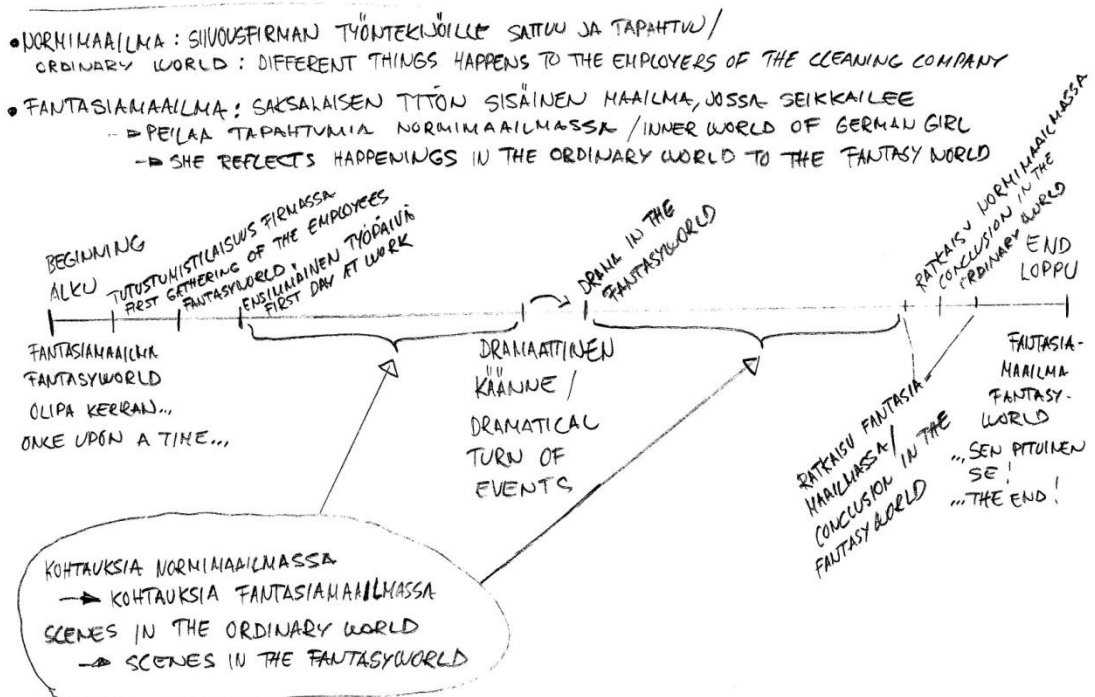 •NORMIMAAILMA : SIIVOUSFIRMAN TYÖNTEKIJÖILLE SATTUU JA TAPAHTUU /
ORDINARY WORLD : DIFFERENT THINGS HAPPENS TO THE EMPLOYERS OF THE CLEANING COMPANY
•FANTASIAMAAILMA : SAKSALAISEN TYTÖN SISÄINEN MAAILMA, JOSSA SEIKKAILEE
→ PEILAA TAPAHTUMIA NORMIMAAILMASSA / INNER WORLD OF GERMAN GIRL
→ SHE REFLECTS HAPPENINGS IN THE ORDINARY WORLD TO THE FANTASY WORLD
BEGINNING
ALKU
TUTUSTUMISTILAISUUS FIRMASSA
FIRST GATHERING OF THE EMPLOYEES
FANTASYWORLD
ENSIMMÄINEN TYÖPÄIVÄ
FIRST DAY AT WORK
DRAMA IN THE
FANTASYWORLD
RATKAISU NORMIMAAILMASSA
CONCLUSION IN THE
ORDINARY WORLD
END
LOPPU
FANTASIAMAAILMA
FANTASYWORLD
OLIPA KERRAN...
ONCE UPON A TIME...
DRAMAATTINEN
KÄÄNNE /
DRAMATICAL
TURN OF
EVENTS
RATKAISU FANTASIA-
MAAILMASSA /
CONCLUSION IN THE
FANTASYWORLD
FANTASIA-
MAAILMA
FANTASY-
WORLD
...SEN PITUINEN
SE!
...THE END!
KOHTAUKSIA NORMIMAAILMASSA
→ KOHTAUKSIA FANTASIAMAAILMASSA
SCENES IN THE ORDINARY WORLD
→ SCENES IN THE FANTASYWORLD